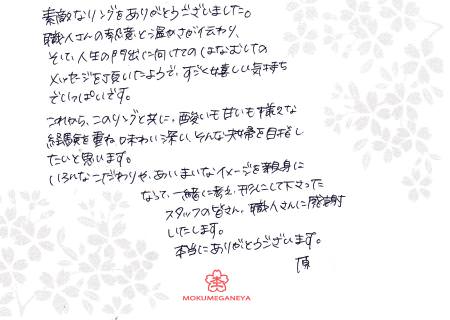 素敵なリングをありがとうございました。
職人さんの熱意と温かさが伝わり、
そして、人生の門出に向けてのはなむけの
メッセージを頂いたようで、すごく嬉しい気持ち
でいっぱいです。
これから、このリングと共に、酸いも甘いも様々な
経験を重ね味わい深い、そんな夫婦を目指し
たいと思います。
いろんなこだわりや、あいまいなイメージを親身に
なって、一緒に考え、形にして下さった
スタッフの皆さん、職人さんに感謝
いたします。
本当にありがとうございます。
MOKUMEGANEYA